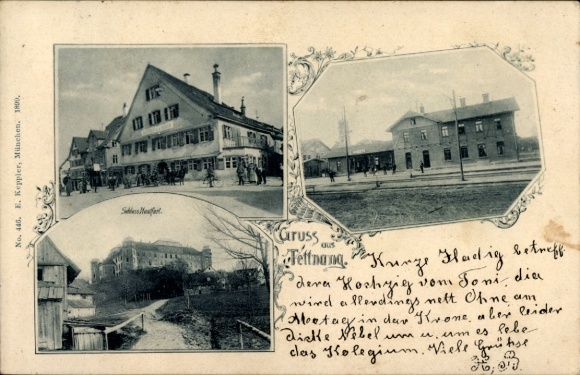 No. 446. E. Keppler, München. 1899.
Schloss Montfort.
Gruss aus
Tettnang.
Kurze
betreff
dera Hochzig vom Toni, dia
wird allerdings nett Ohne am
Motag in dar Krone, aber leider
dicke Nebel um u. um es lebe
das Kolegium. Viele Grüßse